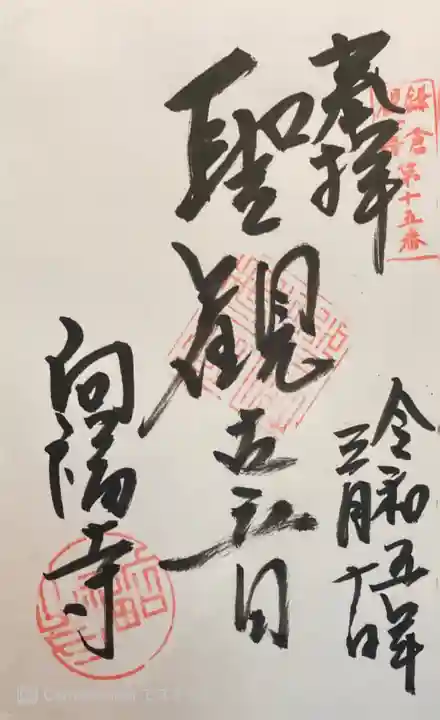 鎌倉第十五番
奉拝
令和五年
三月十日
聖観世音
向福寺